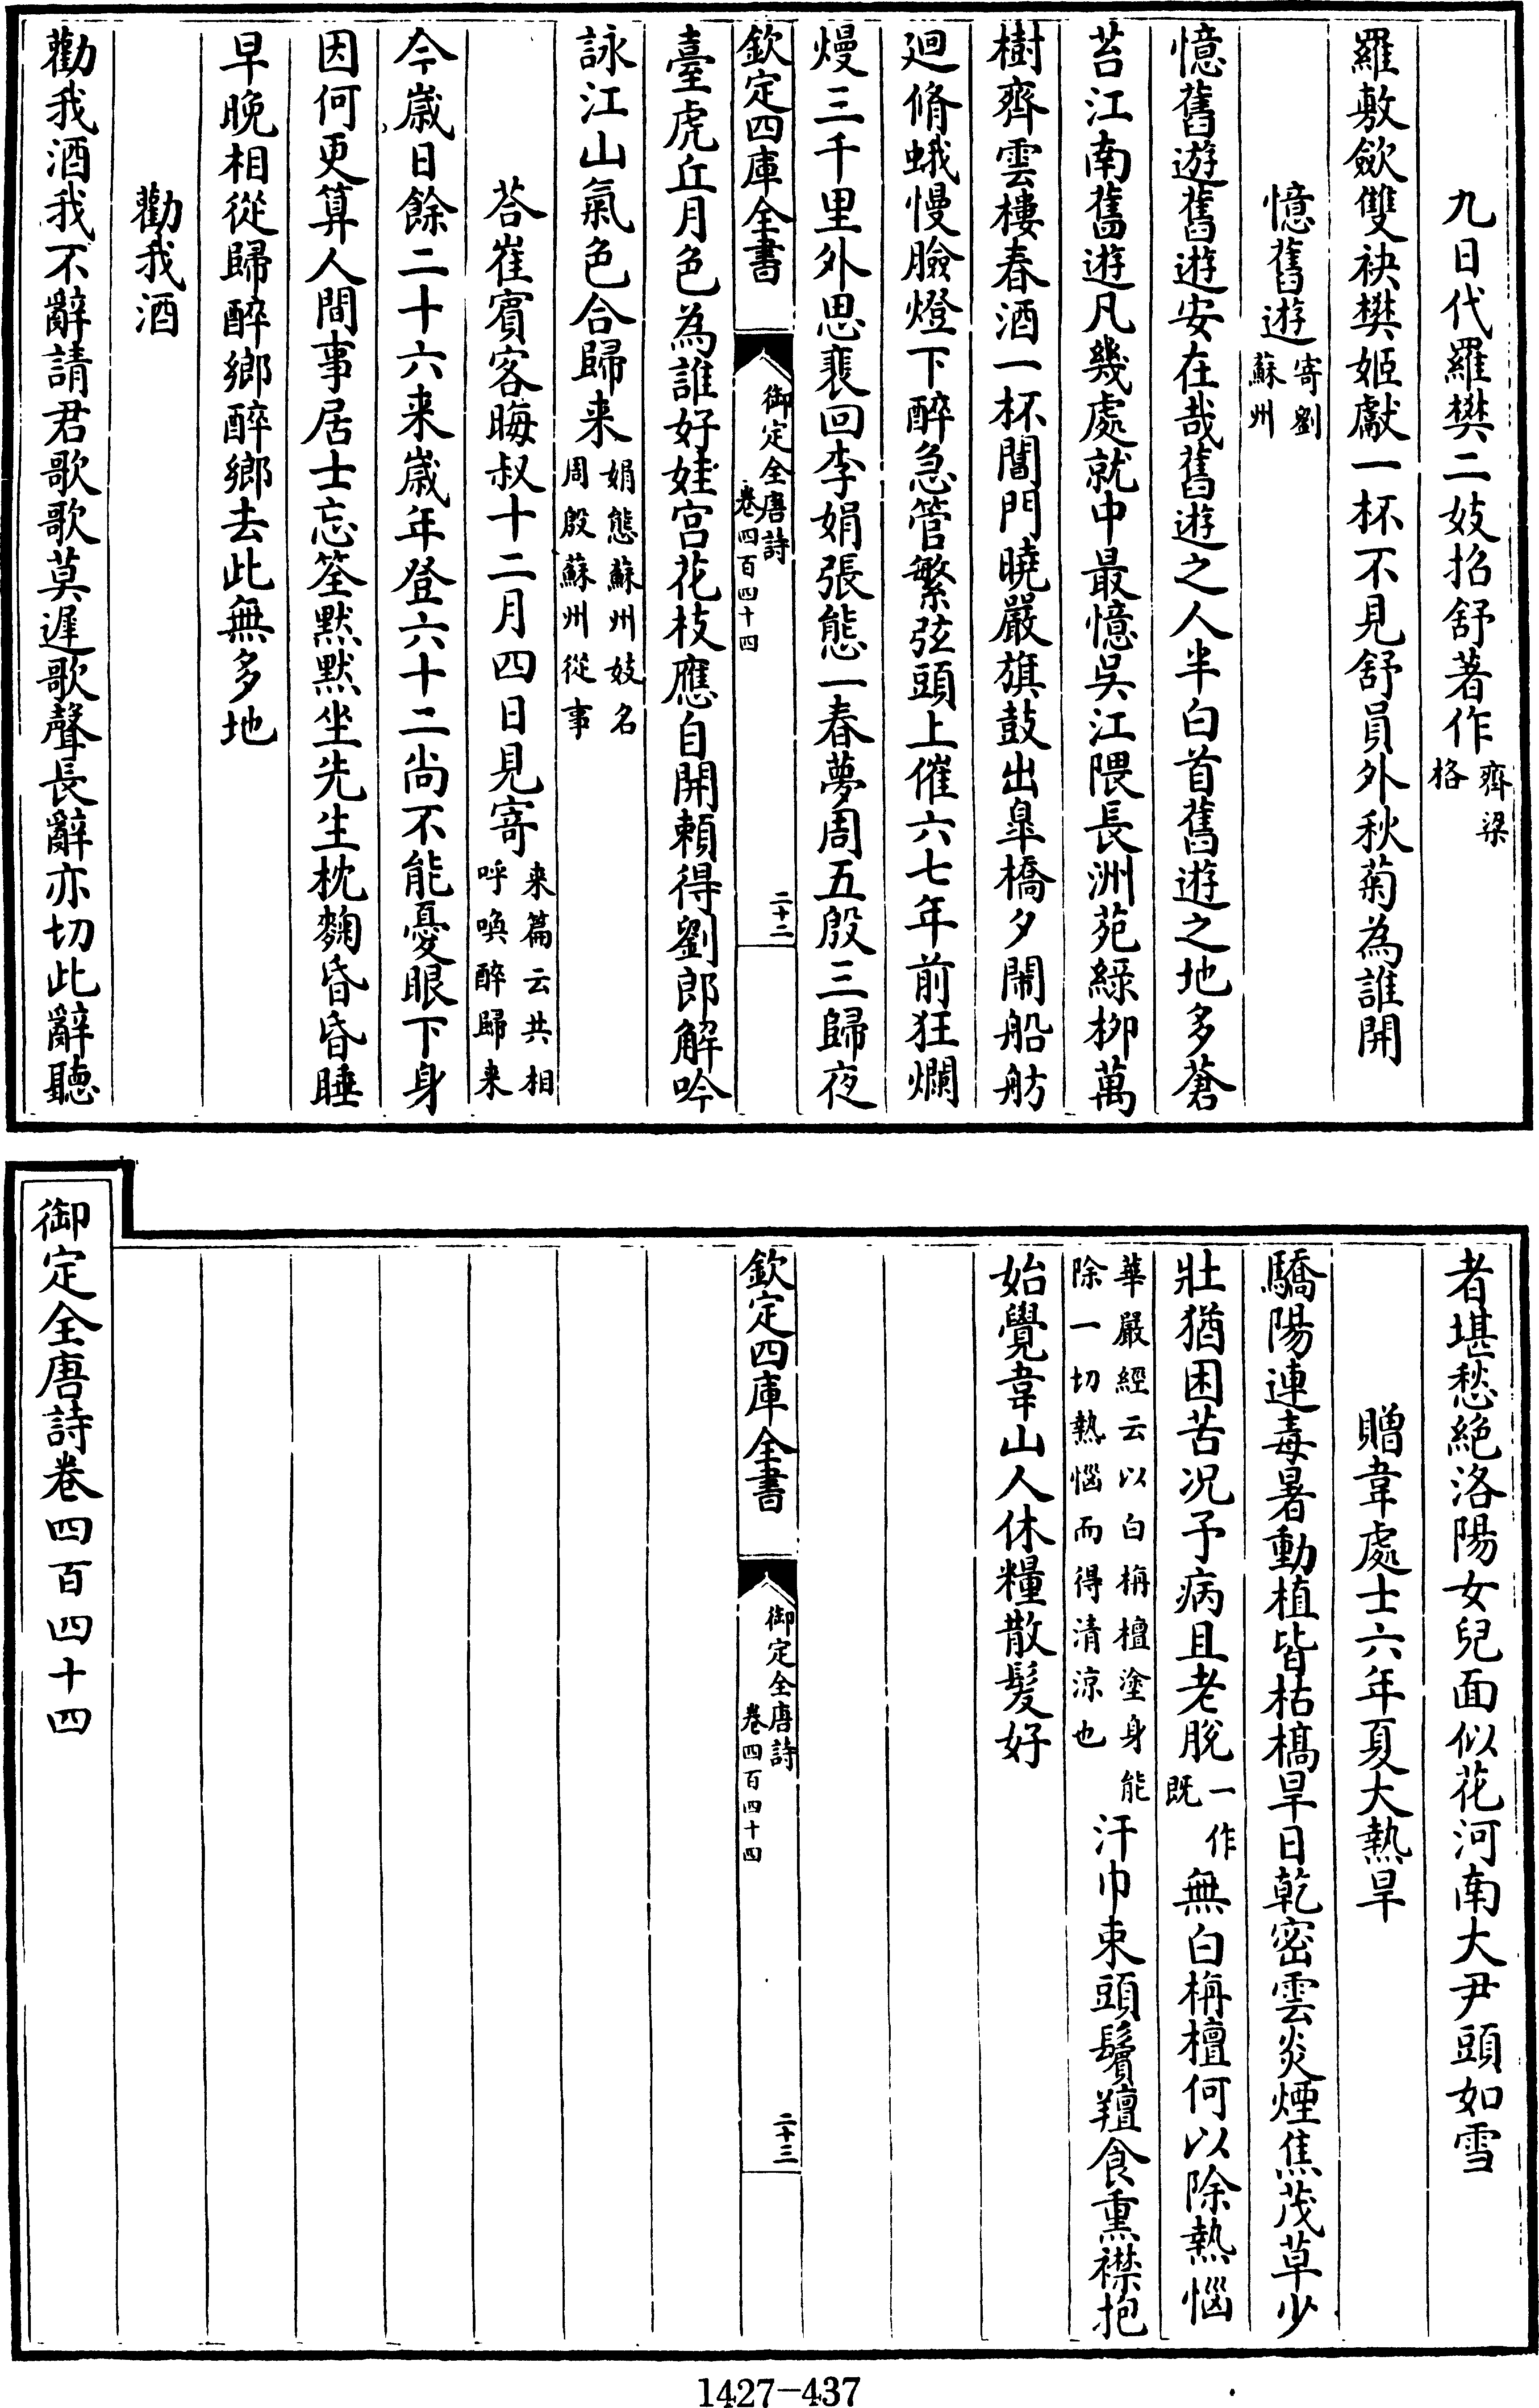 九日代羅樊二妓招舒著作齊梁格
羅敷歛雙袂樊姬獻一杯不見舒員外秋菊為誰開
憶舊遊寄劉蘇州
憶舊遊舊遊安在哉舊遊之人半白首舊遊之地多蒼
苔江南舊遊凡幾處就中最憶吳江隈長洲苑綠栁萬
樹齊雲樓春酒一杯閶門曉嚴旗鼓出臯橋夕鬧船舫
廻脩蛾慢臉燈下醉急管繁弦頭上催六七年前狂爛
熳三千里外思裴回李娟張態一春夢周五殷三歸夜
欽定四庫全書
御定全唐詩
卷四百四十四
二十二
臺虎丘月色為誰好娃宮花枝應自開頼得劉郎解吟
詠江山氣色合歸来娟態蘇州妓名周殷蘇州從事
荅崔賓客晦叔十二月四日見寄来篇云共相呼喚醉歸来
今歲日餘二十六来歲年登六十二尚不能憂眼下身
因何更算人間事居士忘筌黙黙坐先生枕麴昏昏睡
早晚相從歸醉鄉醉鄉去此無多地
勸我酒
勸我酒我不辭請君歌歌莫遲歌聲長辭亦切此辭聽
者堪愁絶洛陽女兒面似花河南大尹頭如雪
贈韋處士六年夏大熱旱
驕陽連毒暑動植皆枯槁旱日乾密雲炎煙焦茂草少
壯猶困苦况予病且老脫一作既無白栴檀何以除熱惱
華嚴經云以白栴檀塗身能除一切熱惱而得清涼也汗巾束頭鬢羶食熏襟抱
始覺韋山人休糧散髮好
欽定四庫全書
御定全唐詩
卷四百四十四
二十三
御定全唐詩卷四百四十四
1427-437